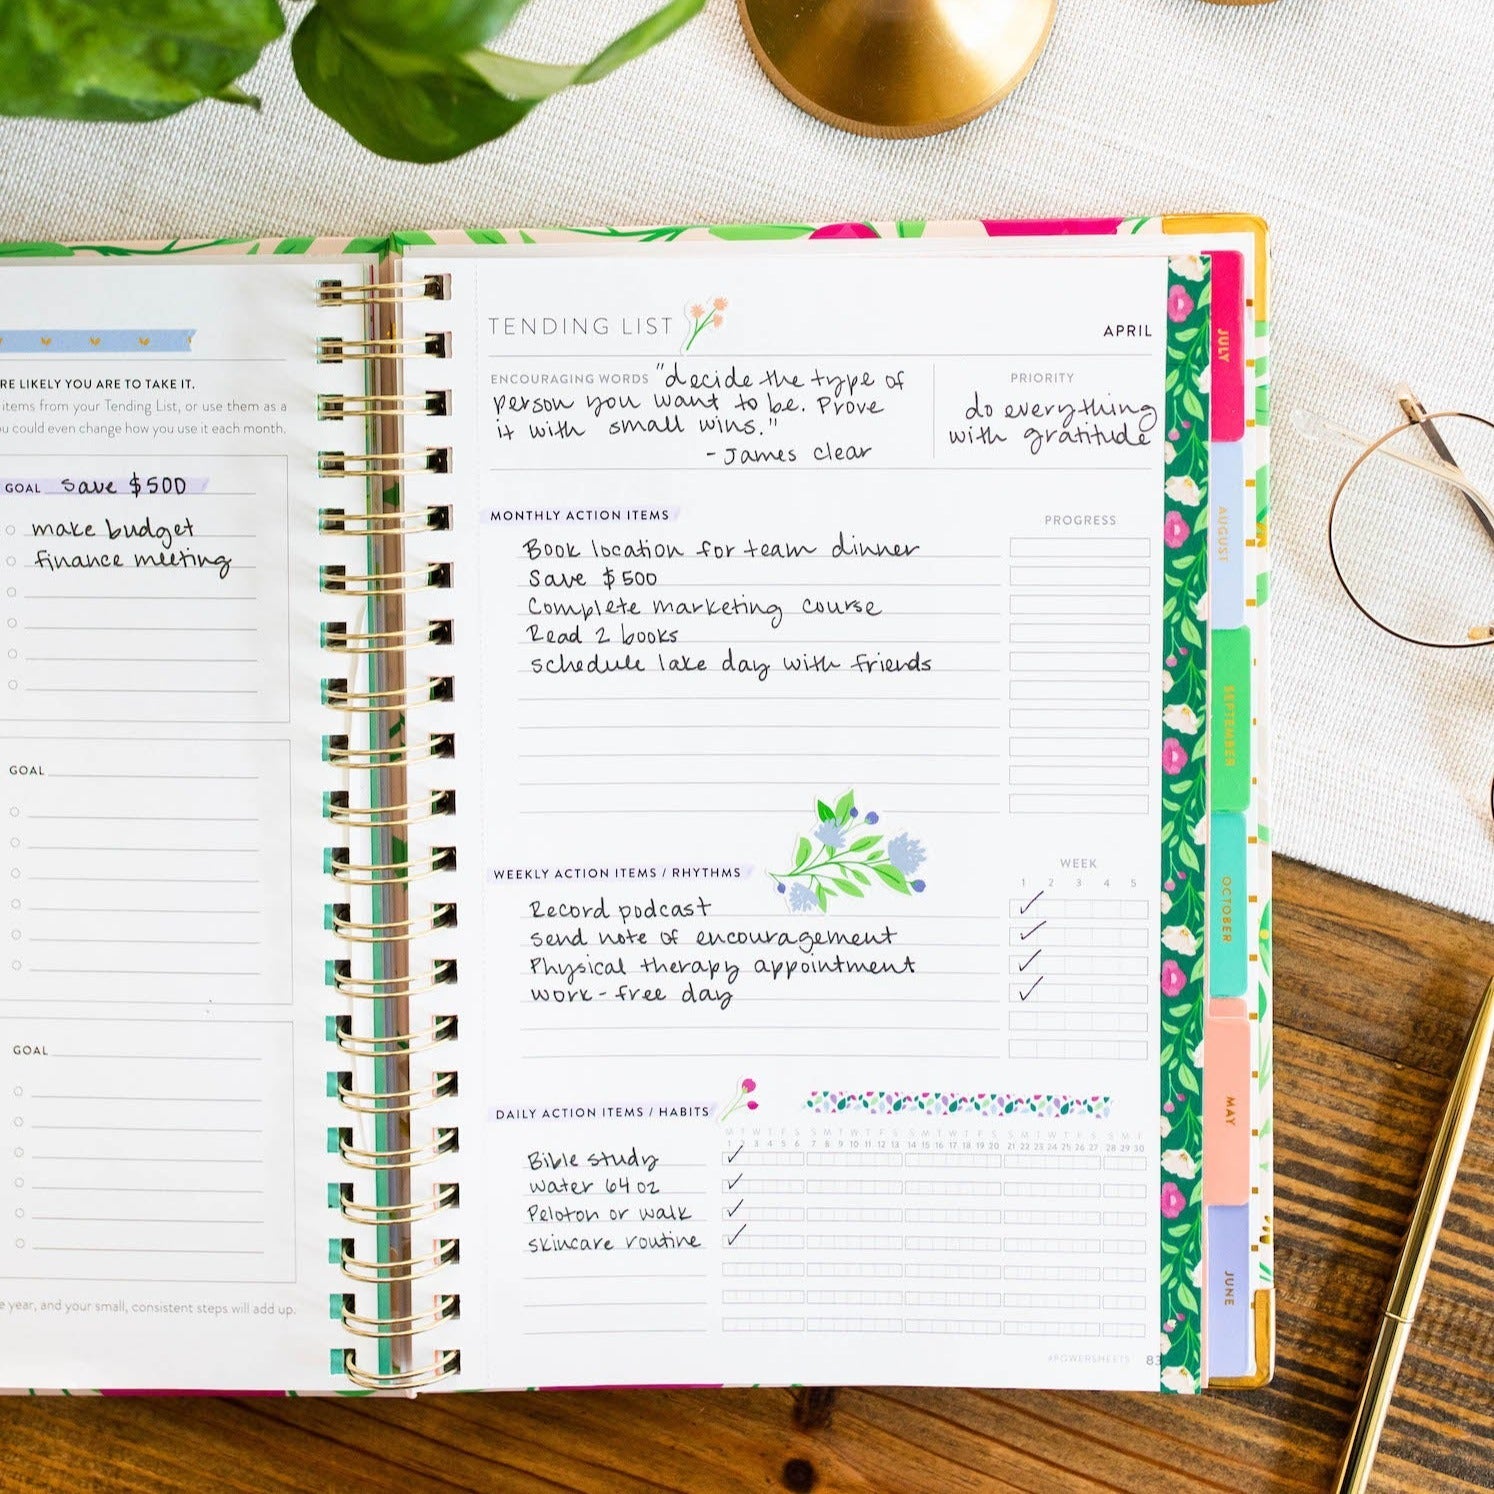 RE LIKELY YOU ARE TO TAKE IT.
items from your Tending List, or use them as a
ou could even change how you use it each month.
GOAL save $500
make budget
finance meeting
GOAL
GOAL
e year, and your small, consistent steps will add up.
TENDING LIST
APRIL
ENCOURAGING WORDS "decide the type of
person you want to be. Prove
it with small wins."
- James Clear
PRIORITY
do everything
with gratitude
MONTHLY ACTION ITEMS
PROGRESS
Book location for team dinner
Save $500
Complete marketing course
Read 2 books
schedule lake day with friends
WEEKLY ACTION ITEMS / RHYTHMS
WEEK
1 2 3 4 5
Record podcast
send note of encouragement
Physical therapy appointment
work-free day
DAILY ACTION ITEMS / HABITS
M T W T F S S M T W T F S S M T W T F S S M T W T F S S M F
1 2 3 4 5 6 7 8 9 10 11 12 13 14 15 16 17 18 19 20 21 22 23 24 25 26 27 28 29 30
Bible study
water 64 oz
Peloton or walk
skincare routine
#POWERSHEETS 83
JULY
AUGUST
SEPTEMBER
OCTOBER
MAY
JUNE